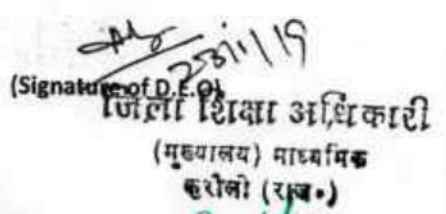 (Signature of D.E.O)
जिला शिक्षा अधिकारी
(मुख्यालय) माध्यमिक
करौली (राज॰)